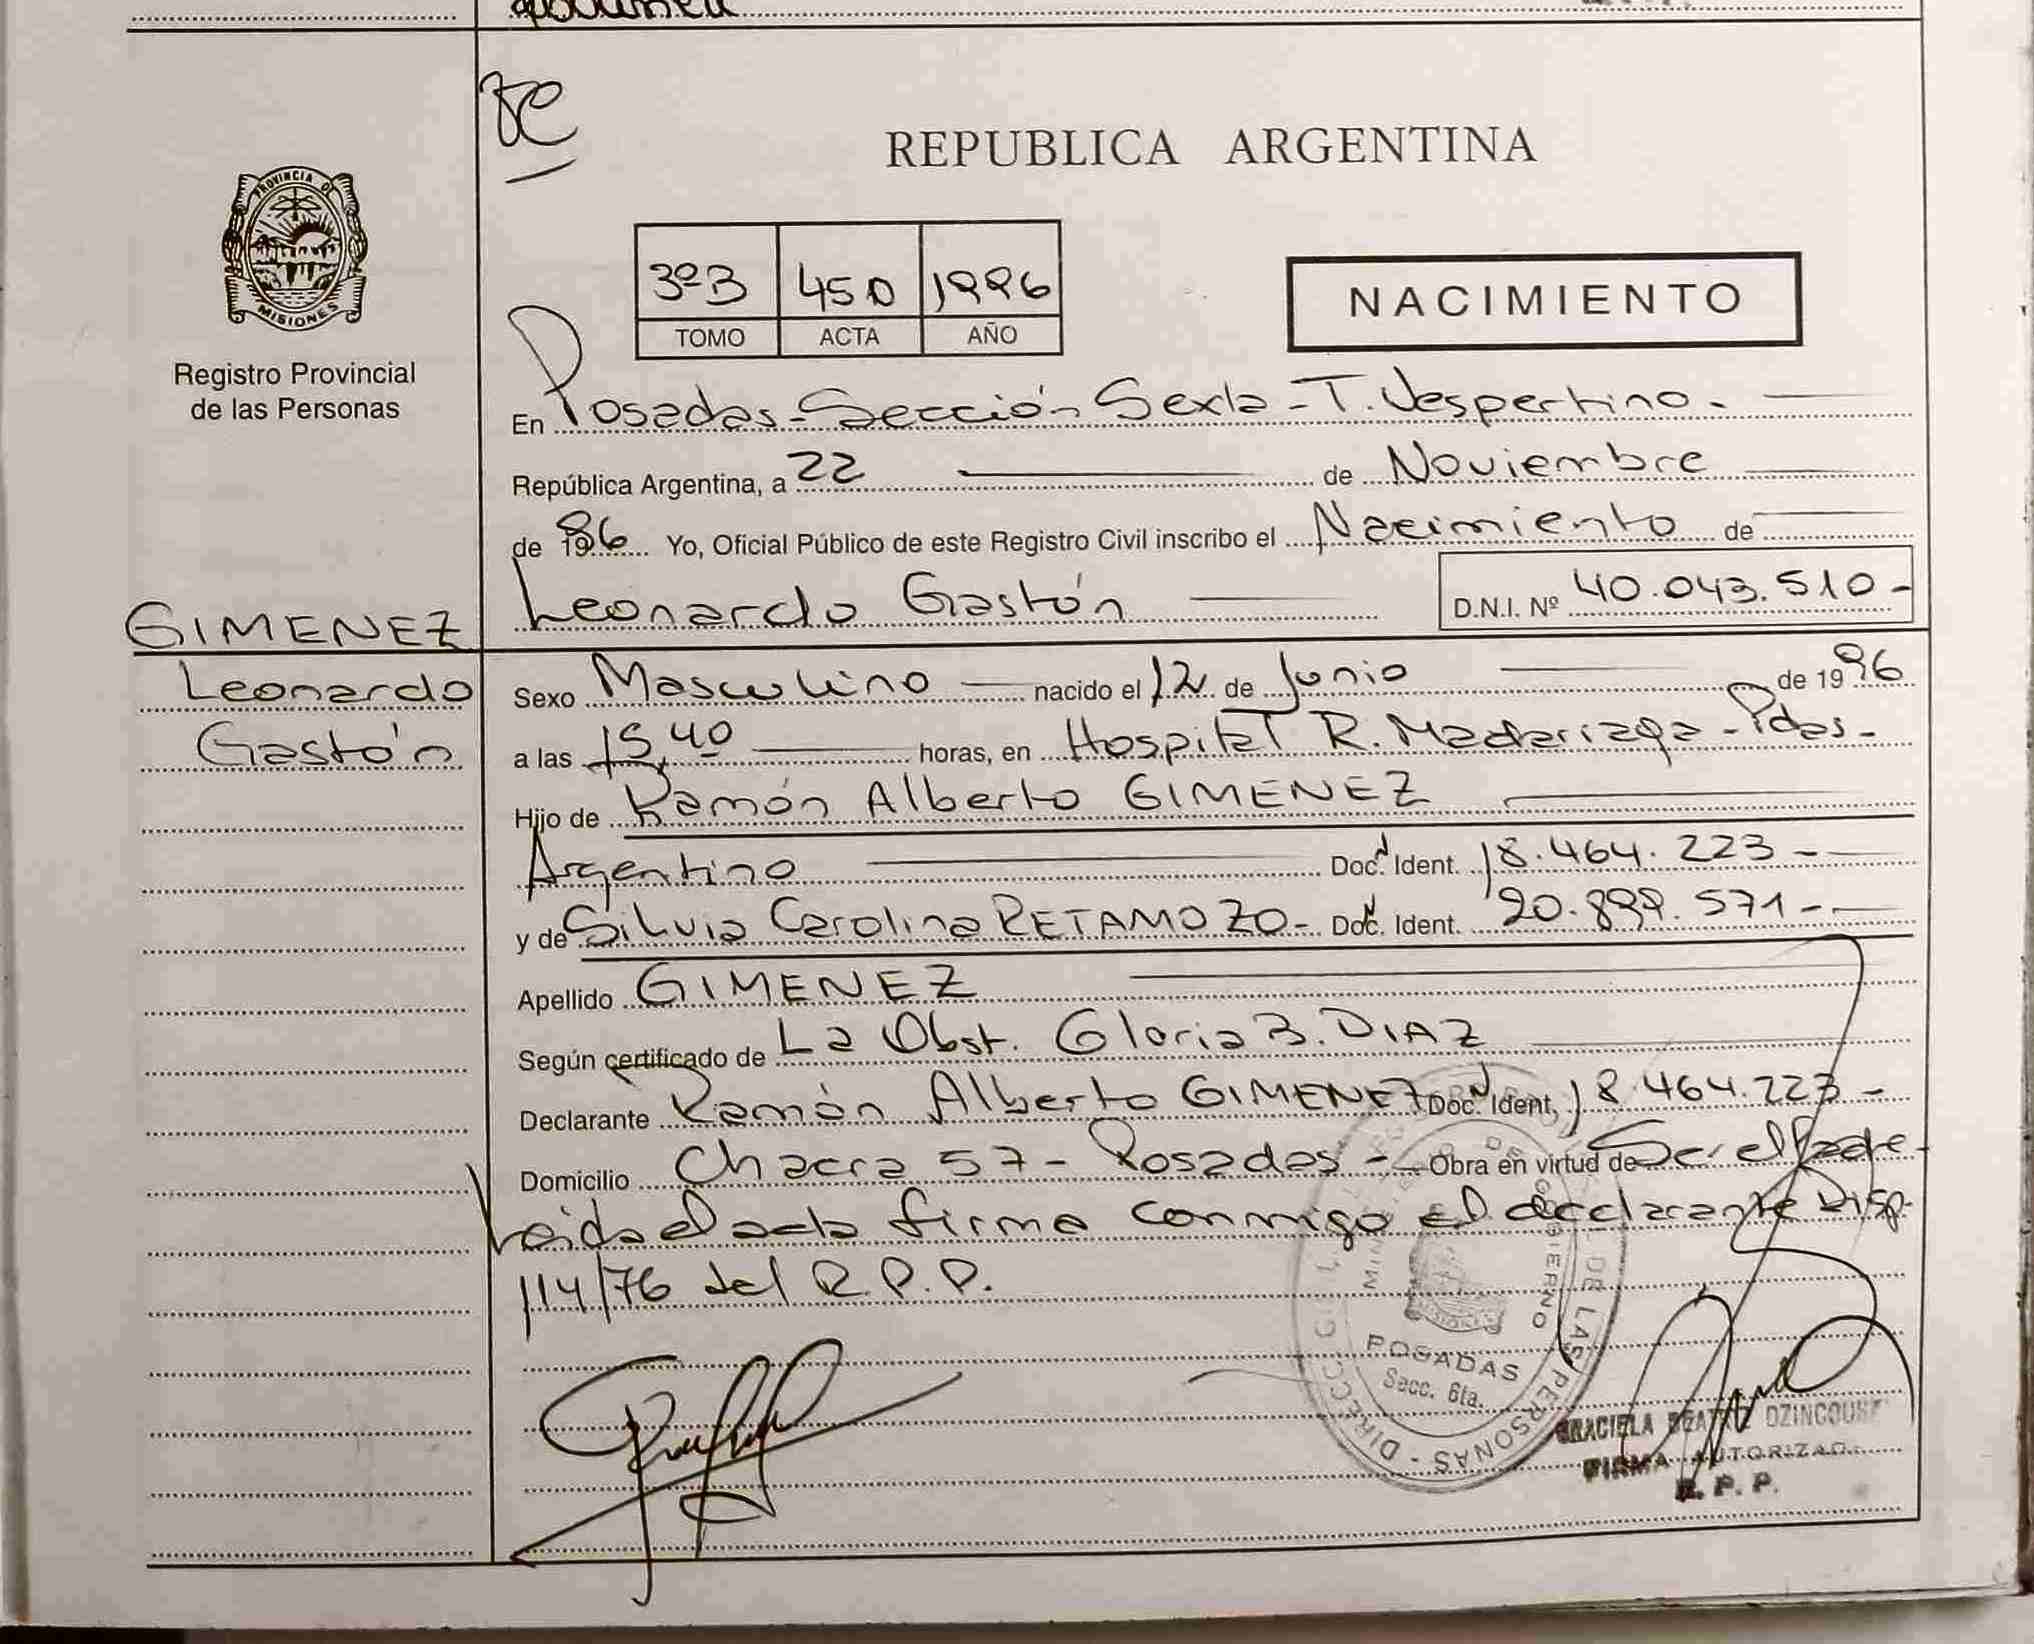 REPUBLICA ARGENTINA
PROVINCIA DE
MISIONES
Registro Provincial
de las Personas
3ºB 450 1996
TOMO ACTA AÑO
NACIMIENTO
En Posadas - Sección Sexta - T. Vespertino. -
República Argentina, a 22 de Noviembre
de 1996 Yo, Oficial Público de este Registro Civil inscribo el Nacimiento de
Leonardo Gastón D.N.I. Nº 40.043.510 -
GIMENEZ
Leonardo
Gastón
Sexo Masculino nacido el 12 de Junio de 1996
a las 15,40 horas, en Hospital R. Madariaga - Pdas -
Hijo de Ramón Alberto GIMENEZ
Argentino Doc. Ident. 18.464.223 -
y de Silvia Carolina RETAMOZO - Doc. Ident. 20.899.571 -
Apellido GIMENEZ
Según certificado de La Obst. Gloria B. DIAZ
Declarante Ramón Alberto GIMENEZ Doc. Ident. 18.464.223 -
Domicilio Chacra 57 - Posadas - Obra en virtud de Ser el Padre -
Leida el acta firma conmigo el declarante Disp.
114/76 del R.P.P.
POSADAS
Secc. 6ta.
DE LAS PERSONAS - DIRECC
GRACIELA
FIRMA AUTORIZADA
R. P. P.